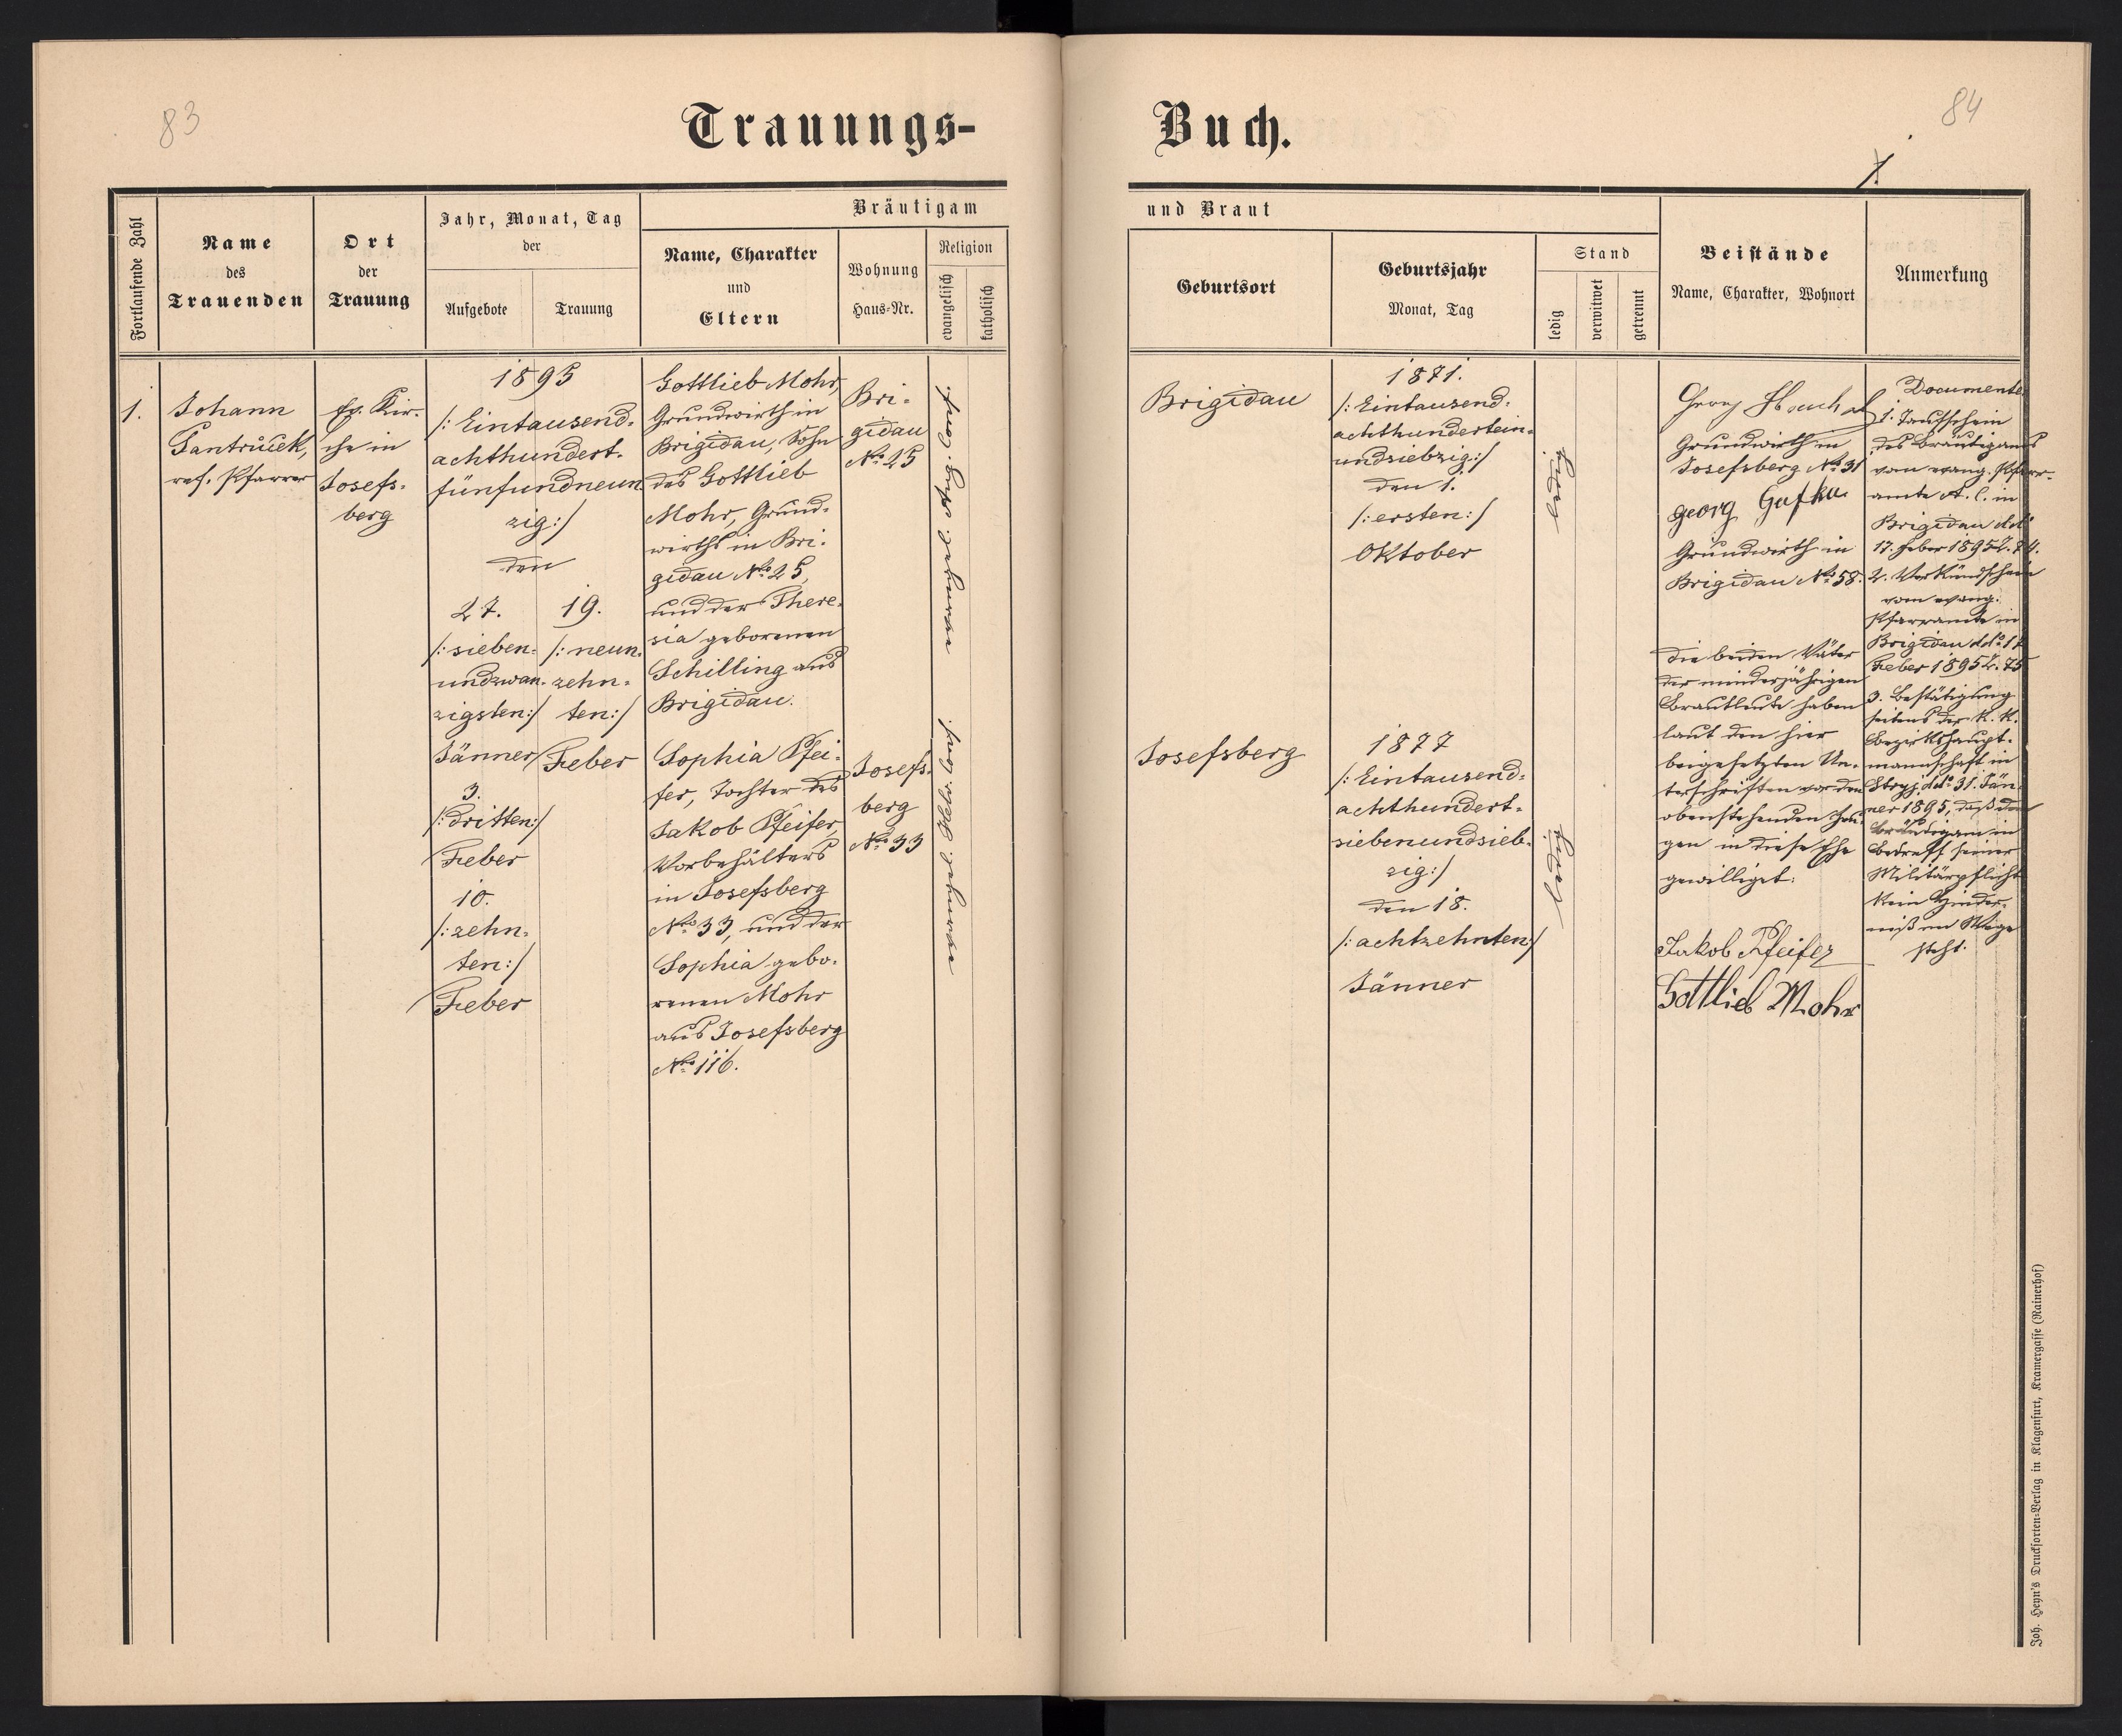 83
84
Trauungs-
Buch.
1.
Fortlaufende Zahl
Name
des
Trauenden
Ort
der
Trauung
Jahr, Monat, Tag
der
Aufgebote
Trauung
Bräutigam
Name, Charakter
und
Eltern
Wohnung
Haus-Nr.
Religion
evangelisch
katholisch
und Braut
Geburtsort
Geburtsjahr
Monat, Tag
Stand
ledig
verwitwet
getrennt
Beistände
Name, Charakter, Wohnort
Anmerkung
1.
Johann
Pantrůček,
ref. Pfarrer
Ev. Kir-
che in
Josefs-
berg
1895
/: Eintausend-
achthundert-
fünfundneun
zig:/
den
27.
/: sieben-
undzwan-
zigsten:/
Jänner
3.
/: dritten:/
Feber
10.
/: zehn-
ten:/
Feber
19.
/: neun-
zehn-
ten:/
Feber
Gottlieb Mohr,
Grundwirth in
Brigidau, Sohn
des Gottlieb
Mohr, Grund-
wirths in Bri-
gidau No 25,
und der There-
sia geborenen
Schilling aus
Brigidau.
Bri-
gidau
No 25
Sophia Pfei-
fer, Tochter des
Jakob Pfeifer,
Vorbehälters
in Josefsberg
No 33, und der
Sophia gebo-
renen Mohr
aus Josefsberg
No 116.
Josefs-
berg
No 33
Brigidau
1871.
/: Eintausend-
achthundertein-
undsiebzig:/
den 1.
/: ersten:/
Oktober
ledig
Josefsberg
1877
/: Eintausend-
achthundert-
siebenundsieb-
zig:/
den 18.
/: achtzehnten:/
Jänner
ledig
Georg
Grundwirth in
Josefsberg No 31
georg Gafka
Grundwirth in
Brigidau No 58.
Die beiden Väter
der minderjährigen
Brautleute haben
laut den hier
beigesetzten Un-
terschriften vor den
obenstehenden Zeu-
gen in diese Ehe
gewilliget:
Jakob Pfeifer
Gottlieb Mohr
Documente
1. Taufschein
des Bräutigams
vom evang. Pfarr-
amte A. C. in
Brigidau ddo
17. Feber 1895 Z. 74.
2. Verkündschein
vom evang.
Pfarramte in
Brigidau ddo 17
Feber 1895 Z. 75
3. Bestätigung
seitens der k. k.
Bezirkshaupt-
mannschaft in
Stryj, ddo 31. Jän-
ner 1895, daß dem
Bräutigam in
Betreff seiner
Militärpflicht
kein Hinder-
niß im Wege
steht.
Joh. Heyn's Drucksorten-Verlag in Klagenfurt, Kramergasse (Rainerhof)